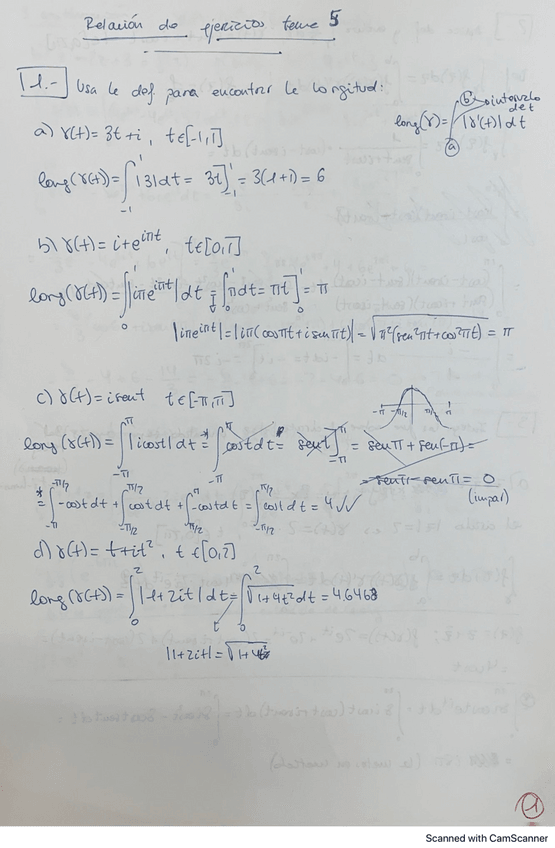 Relación de ejercicios tema 5
1.- Usa la def para encontrar la longitud:
long(γ) = ∫ |γ'(t)| dt
b → intervalo de t
a
a) γ(t) = 3t+i, t∈[-1,1]
long(γ(t)) = ∫_{-1}^{1} |3| dt = 3t]_{-1}^{1} = 3(1+1) = 6
b) γ(t) = i+e^{iπt}, t∈[0,1]
long(γ(t)) = ∫_0^1 |iπe^{iπt}| dt = ∫_0^1 π dt = πt]_0^1 = π
|iπe^{iπt}| = |iπ(cosπt+i senπt)| = √(π²(sen²πt+cos²πt)) = π
c) γ(t) = i sent t∈[-π,π]
-π -π/2 π/2 π
long(γ(t)) = ∫_{-π}^{π} |i cost| dt =* ∫_{-π}^{π} cost dt = sent]_{-π}^{π} = senπ + sen(-π) =
senπ - senπ = 0
(impar)
*= ∫_{-π}^{-π/2} -cost dt + ∫_{-π/2}^{π/2} cost dt + ∫_{π/2}^{π} -cost dt = ∫_{-π/2}^{π/2} cost dt = 4 √√
d) γ(t) = t+it², t∈[0,2]
long(γ(t)) = ∫_0^2 |1+2it| dt = ∫_0^2 √(1+4t²) dt = 4'6468
|1+2it| = √(1+4t²)
1
Scanned with CamScanner